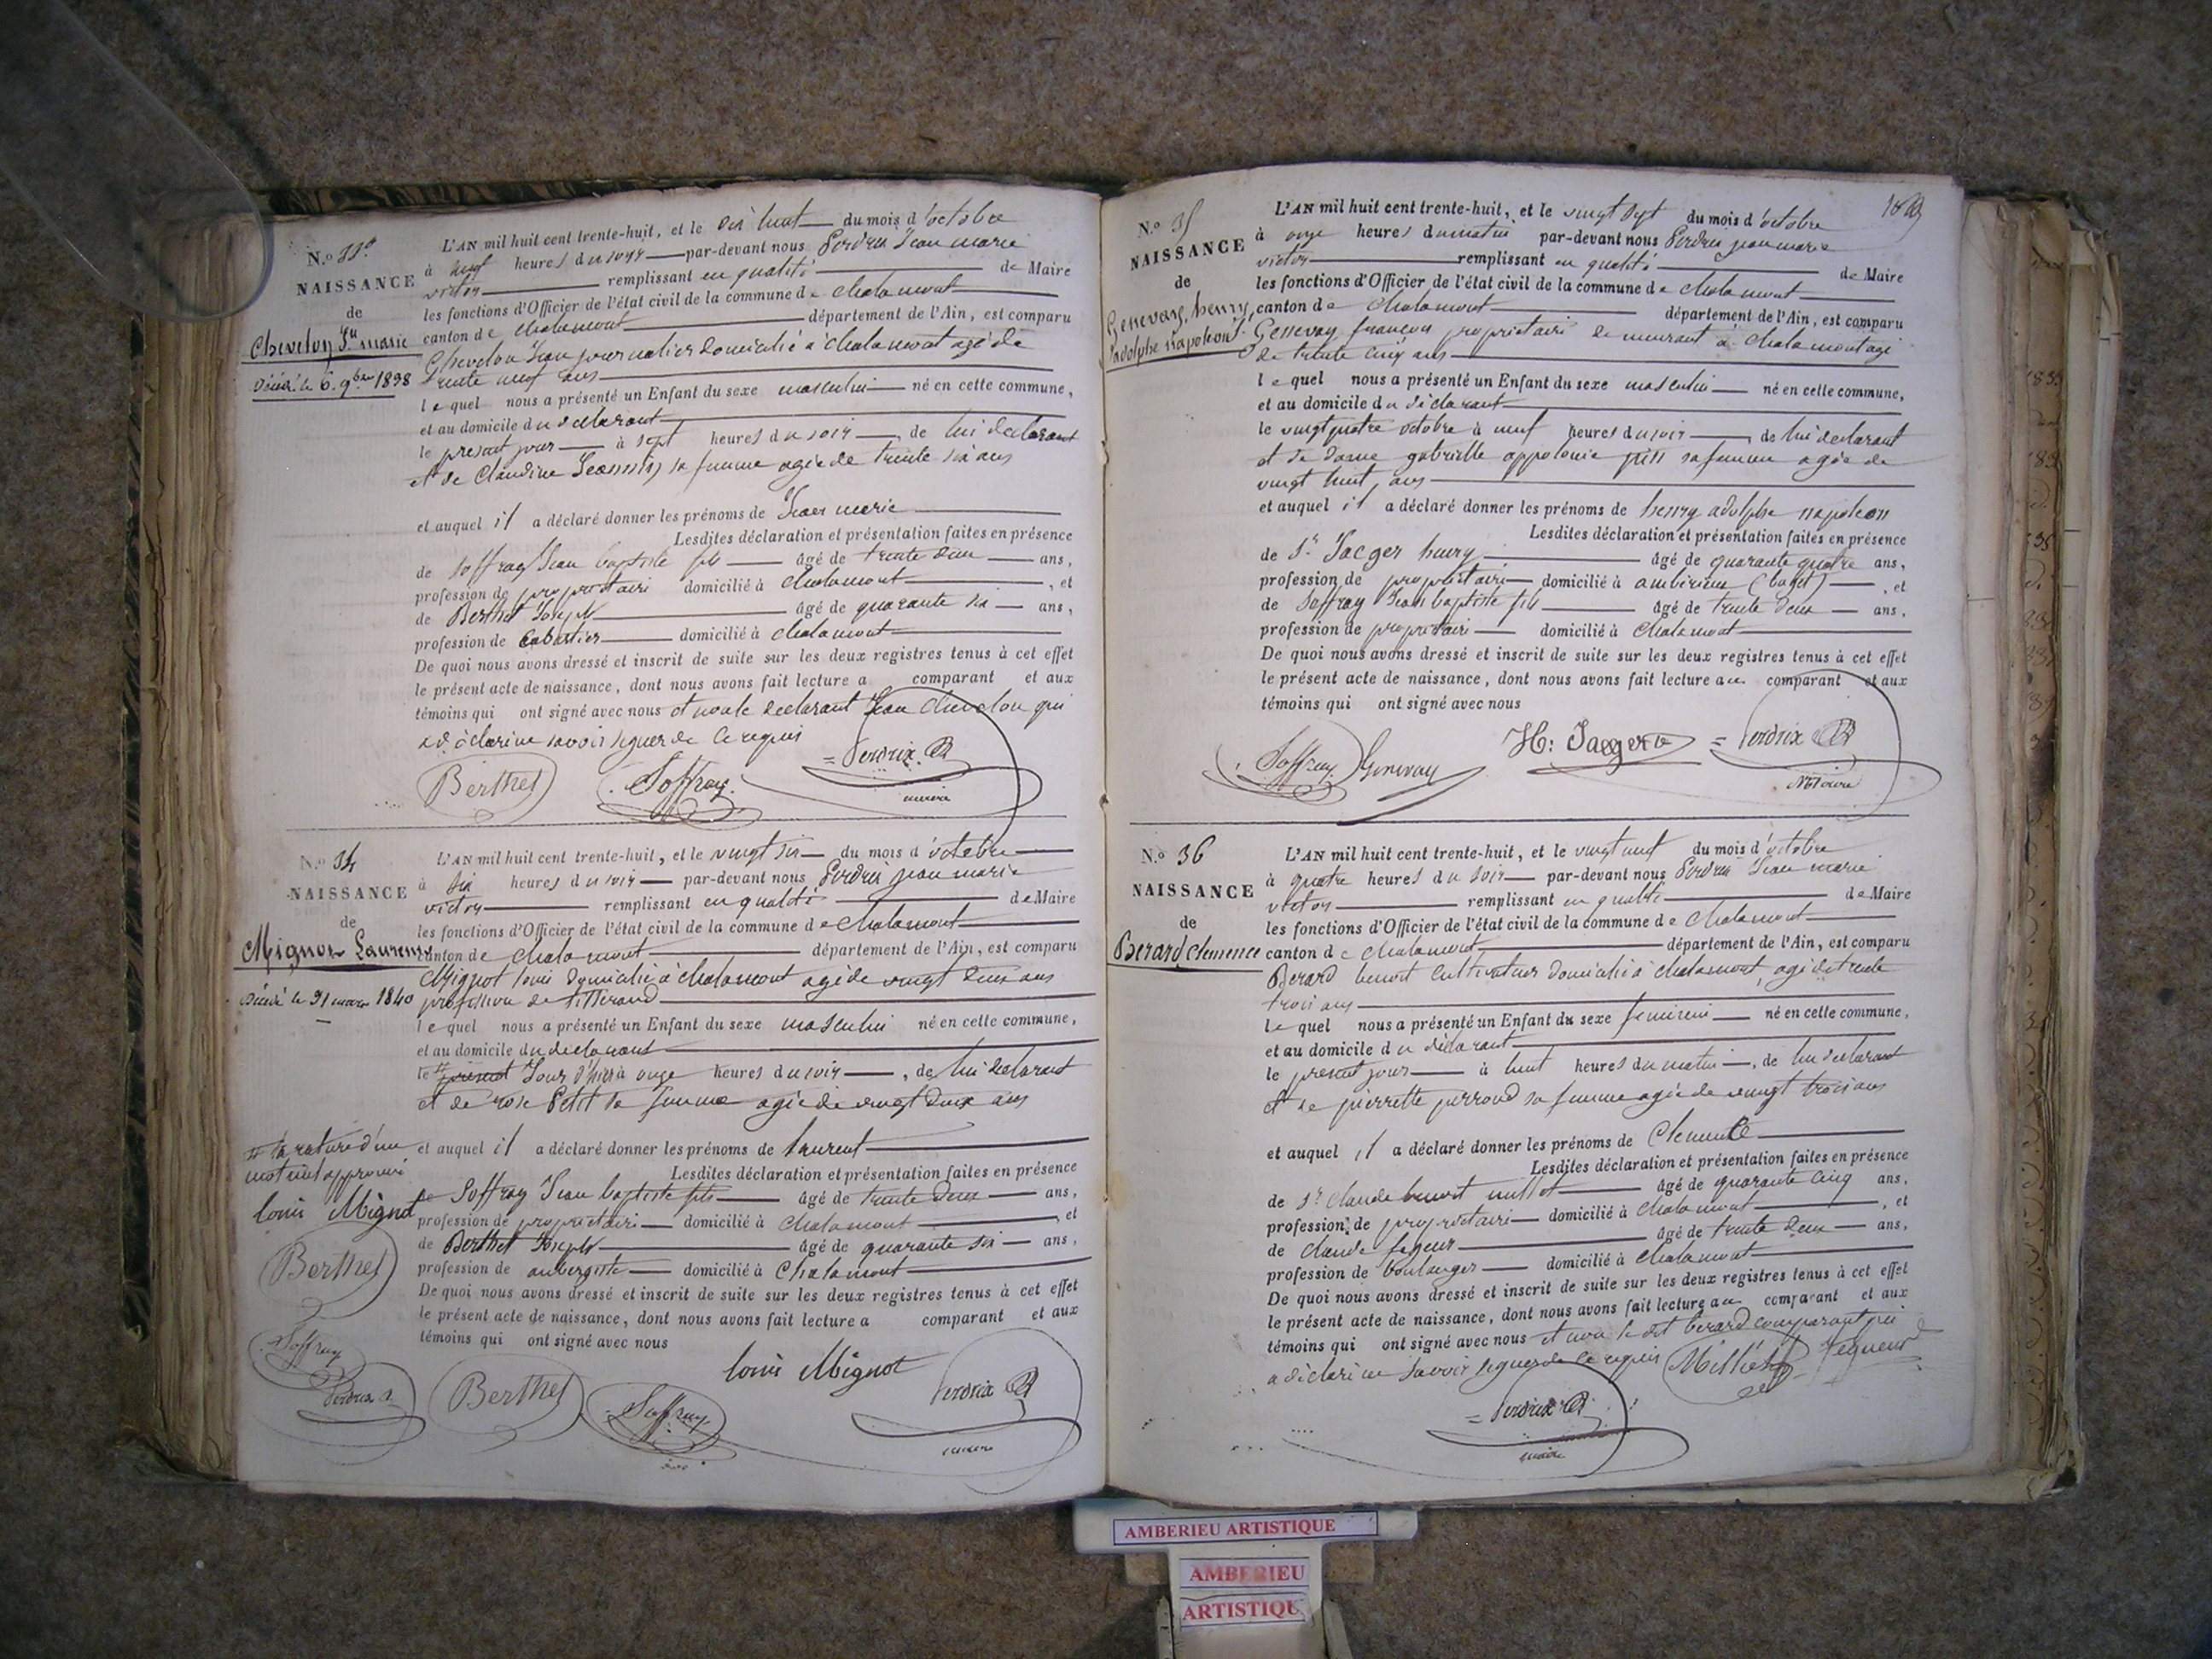 N.º 33.
NAISSANCE
de
Chevelon Jn marie
Décédé le 6. 9bre 1898
L'AN mil huit cent trente-huit, et le dix huit du mois d'octobre
à huit heures du soir par-devant nous Perdrix Jean marie
victor remplissant en qualité de Maire
les fonctions d'Officier de l'état civil de la commune de chalamont
canton de chalamont département de l'Ain, est comparu
Chevelon Jean journalier domicilié à chalamont agé de
trente neuf ans
lequel nous a présenté un Enfant du sexe masculin né en cette commune,
et au domicile du declarant
le present jour à sept heures du soir, de lui declarant
et de Claudine sa femme agée de trente six ans
et auquel il a déclaré donner les prénoms de Jean marie
Lesdites déclaration et présentation faites en présence
de Soffray Jean baptiste fils âgé de trente deux ans,
profession de propriétaire domicilié à chalamont, et
de Berthet Joseph âgé de quarante six ans,
profession de Cabartier domicilié à chalamont
De quoi nous avons dressé et inscrit de suite sur les deux registres tenus à cet effet
le présent acte de naissance, dont nous avons fait lecture a comparant et aux
témoins qui ont signé avec nous et non le declarant Jean Chevelon qui
a déclaré ne savoir signer de ce requis
Berthet Soffray = Perdrix
maire
N.º 34
NAISSANCE
de
Mignot Laurent
Décédé le 31 mars 1840
L'AN mil huit cent trente-huit, et le vingt six du mois d'octobre
à six heures du soir par-devant nous Perdrix jean marie
victor remplissant en qualité de Maire
les fonctions d'Officier de l'état civil de la commune de chalamont
canton de chalamont département de l'Ain, est comparu
Mignot louis domicilié à chalamont agé de vingt deux ans
profession de tisserand
lequel nous a présenté un Enfant du sexe masculin né en cette commune,
et au domicile du declarant
le # present Jour d'hier à onze heures du soir, de lui declarant
et de rose Petit sa femme agée de vingt deux ans
et auquel il a déclaré donner les prénoms de laurent
Lesdites déclaration et présentation faites en présence
de Soffray Jean baptiste fils âgé de trente deux ans,
profession de propriétaire domicilié à chalamont, et
de Berthet Joseph âgé de quarante six ans,
profession de aubergiste domicilié à Chalamont
De quoi nous avons dressé et inscrit de suite sur les deux registres tenus à cet effet
le présent acte de naissance, dont nous avons fait lecture a comparant et aux
témoins qui ont signé avec nous
# la rature d'un
mot nul approuvé
louis Mignot
Berthet
Soffray
Perdrix
louis Mignot
Berthet Soffray Perdrix
maire
N.º 35
NAISSANCE
de
Genevay, henry,
adolphe napoleon
L'AN mil huit cent trente-huit, et le vingt sept du mois d'octobre
à onze heures du matin par-devant nous Perdrix jean marie
victor remplissant en qualité de Maire
les fonctions d'Officier de l'état civil de la commune de chalamont
canton de chalamont département de l'Ain, est comparu
Genevay françois propriétaire demeurant à chalamont agé
de trente cinq ans
lequel nous a présenté un Enfant du sexe masculin né en cette commune,
et au domicile du déclarant
le vingt quatre octobre à neuf heures du soir, de lui declarant
et de dame gabrielle appolonie sa femme agée de
vingt huit ans
et auquel il a déclaré donner les prénoms de henry adolphe napoleon
Lesdites déclaration et présentation faites en présence
de Sr Jaeger henry âgé de quarante quatre ans,
profession de propriétaire domicilié à ambérieux (buget), et
de Soffray Jean baptiste fils âgé de trente deux ans,
profession de propriétaire domicilié à Chalamont
De quoi nous avons dressé et inscrit de suite sur les deux registres tenus à cet effet
le présent acte de naissance, dont nous avons fait lecture au comparant et aux
témoins qui ont signé avec nous
Soffray Genevay H: Jaeger = Perdrix
Maire
N.º 36
NAISSANCE
de
Berard clemence
L'AN mil huit cent trente-huit, et le vingt neuf du mois d'octobre
à quatre heures du soir par-devant nous Perdrix Jean marie
victor remplissant en qualité de Maire
les fonctions d'Officier de l'état civil de la commune de chalamont
canton de chalamont département de l'Ain, est comparu
Berard benoit cultivateur domicilié à chalamont, agé de trente
trois ans
lequel nous a présenté un Enfant du sexe feminin né en cette commune,
et au domicile du déclarant
le present jour à huit heures du matin, de lui declarant
et de pierrette perroud sa femme agée de vingt trois ans
et auquel il a déclaré donner les prénoms de Clemence
Lesdites déclaration et présentation faites en présence
de Sr claude benoit âgé de quarante cinq ans,
profession de propriétaire domicilié à chalamont, et
de claude âgé de trente deux ans,
profession de boulanger domicilié à chalamont
De quoi nous avons dressé et inscrit de suite sur les deux registres tenus à cet effet
le présent acte de naissance, dont nous avons fait lecture au comparant et aux
témoins qui ont signé avec nous et non le dit berard comparant qui
a déclaré ne savoir signer de ce requis
= Perdrix
maire
AMBERIEU ARTISTIQUE
AMBERIEU
ARTISTIQU